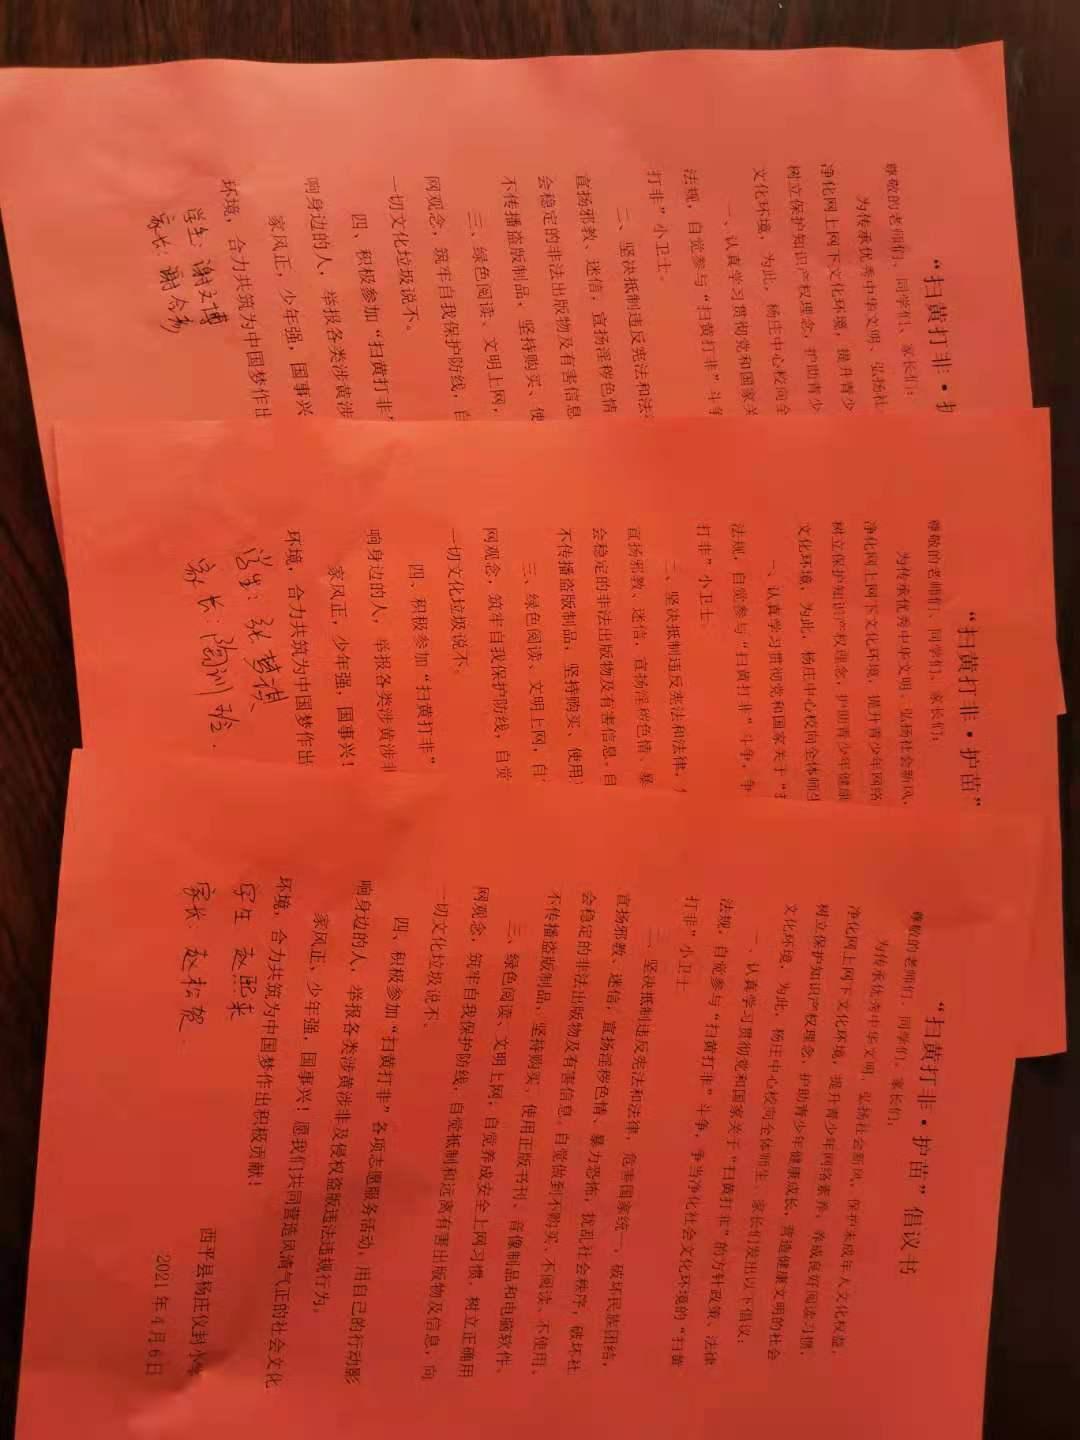 “扫黄打非·护
尊敬的老师们、同学们、家长们:
为传承优秀中华文明、弘扬社
净化网上网下文化环境，提升青少
树立保护知识产权理念，护助青少
文化环境，为此，杨庄中心校向全
一、认真学习贯彻党和国家关
法规，自觉参与“扫黄打非”斗争
打非”小卫士。
二、坚决抵制违反宪法和法
宣扬邪教、迷信，宣扬淫秽色情
会稳定的非法出版物及有害信息
不传播盗版制品，坚持购买、使
三、绿色阅读、文明上网，
网观念，筑牢自我保护防线，自
一切文化垃圾说不。
四、积极参加“扫黄打非”
响身边的人，举报各类涉黄涉
家风正，少年强，国事兴
环境，合力共筑为中国梦作出
学生: 谢文博
家长: 谢
“扫黄打非·护苗”
尊敬的老师们、同学们、家长们:
为传承优秀中华文明、弘扬社会新风、
净化网上网下文化环境，提升青少年网络
树立保护知识产权理念，护助青少年健康
文化环境，为此，杨庄中心校向全体师生
一、认真学习贯彻党和国家关于“扫
法规，自觉参与“扫黄打非”斗争，争
打非”小卫士。
二、坚决抵制违反宪法和法律，
宣扬邪教、迷信，宣扬淫秽色情、暴
会稳定的非法出版物及有害信息。自
不传播盗版制品，坚持购买、使用
三、绿色阅读、文明上网，自
网观念，筑牢自我保护防线，自觉
一切文化垃圾说不。
四、积极参加“扫黄打非”
响身边的人，举报各类涉黄涉非
家风正，少年强，国事兴！
环境，合力共筑为中国梦作出
学生: 张梦祺
家长: 陶
“扫黄打非·护苗”倡议书
尊敬的老师们、同学们、家长们:
为传承优秀中华文明、弘扬社会新风，保护未成年人文化权益，
净化网上网下文化环境，提升青少年网络素养，养成良好阅读习惯，
树立保护知识产权理念，护助青少年健康成长，营造健康文明的社会
文化环境，为此，杨庄中心校向全体师生、家长们发出以下倡议:
一、认真学习贯彻党和国家关于“扫黄打非”的方针政策、法律
法规，自觉参与“扫黄打非”斗争，争当净化社会文化环境的“扫黄
打非”小卫士
二、坚决抵制违反宪法和法律，危害国家统一，破坏民族团结，
宣扬邪教、迷信，宣扬淫秽色情、暴力恐怖，扰乱社会秩序，破坏社
会稳定的非法出版物及有害信息。自觉做到不购买、不阅读、不使用、
不传播盗版制品，坚持购买、使用正版书刊、音像制品和电脑软件、
三、绿色阅读、文明上网，自觉养成安全上网习惯，树立正确用
网观念，筑牢自我保护防线，自觉抵制和远离有害出版物及信息，向
一切文化垃圾说不、
四、积极参加“扫黄打非”各项志愿服务活动，用自己的行动影
响身边的人，举报各类涉黄涉非及侵权盗版违法违规行为。
家风正，少年强，国事兴！愿我们共同营造风清气正的社会文化
环境，合力共筑为中国梦作出积极贡献！
学生 赵熙来
家长: 赵松贺
西平县杨庄仪封小学
2021年4月6日